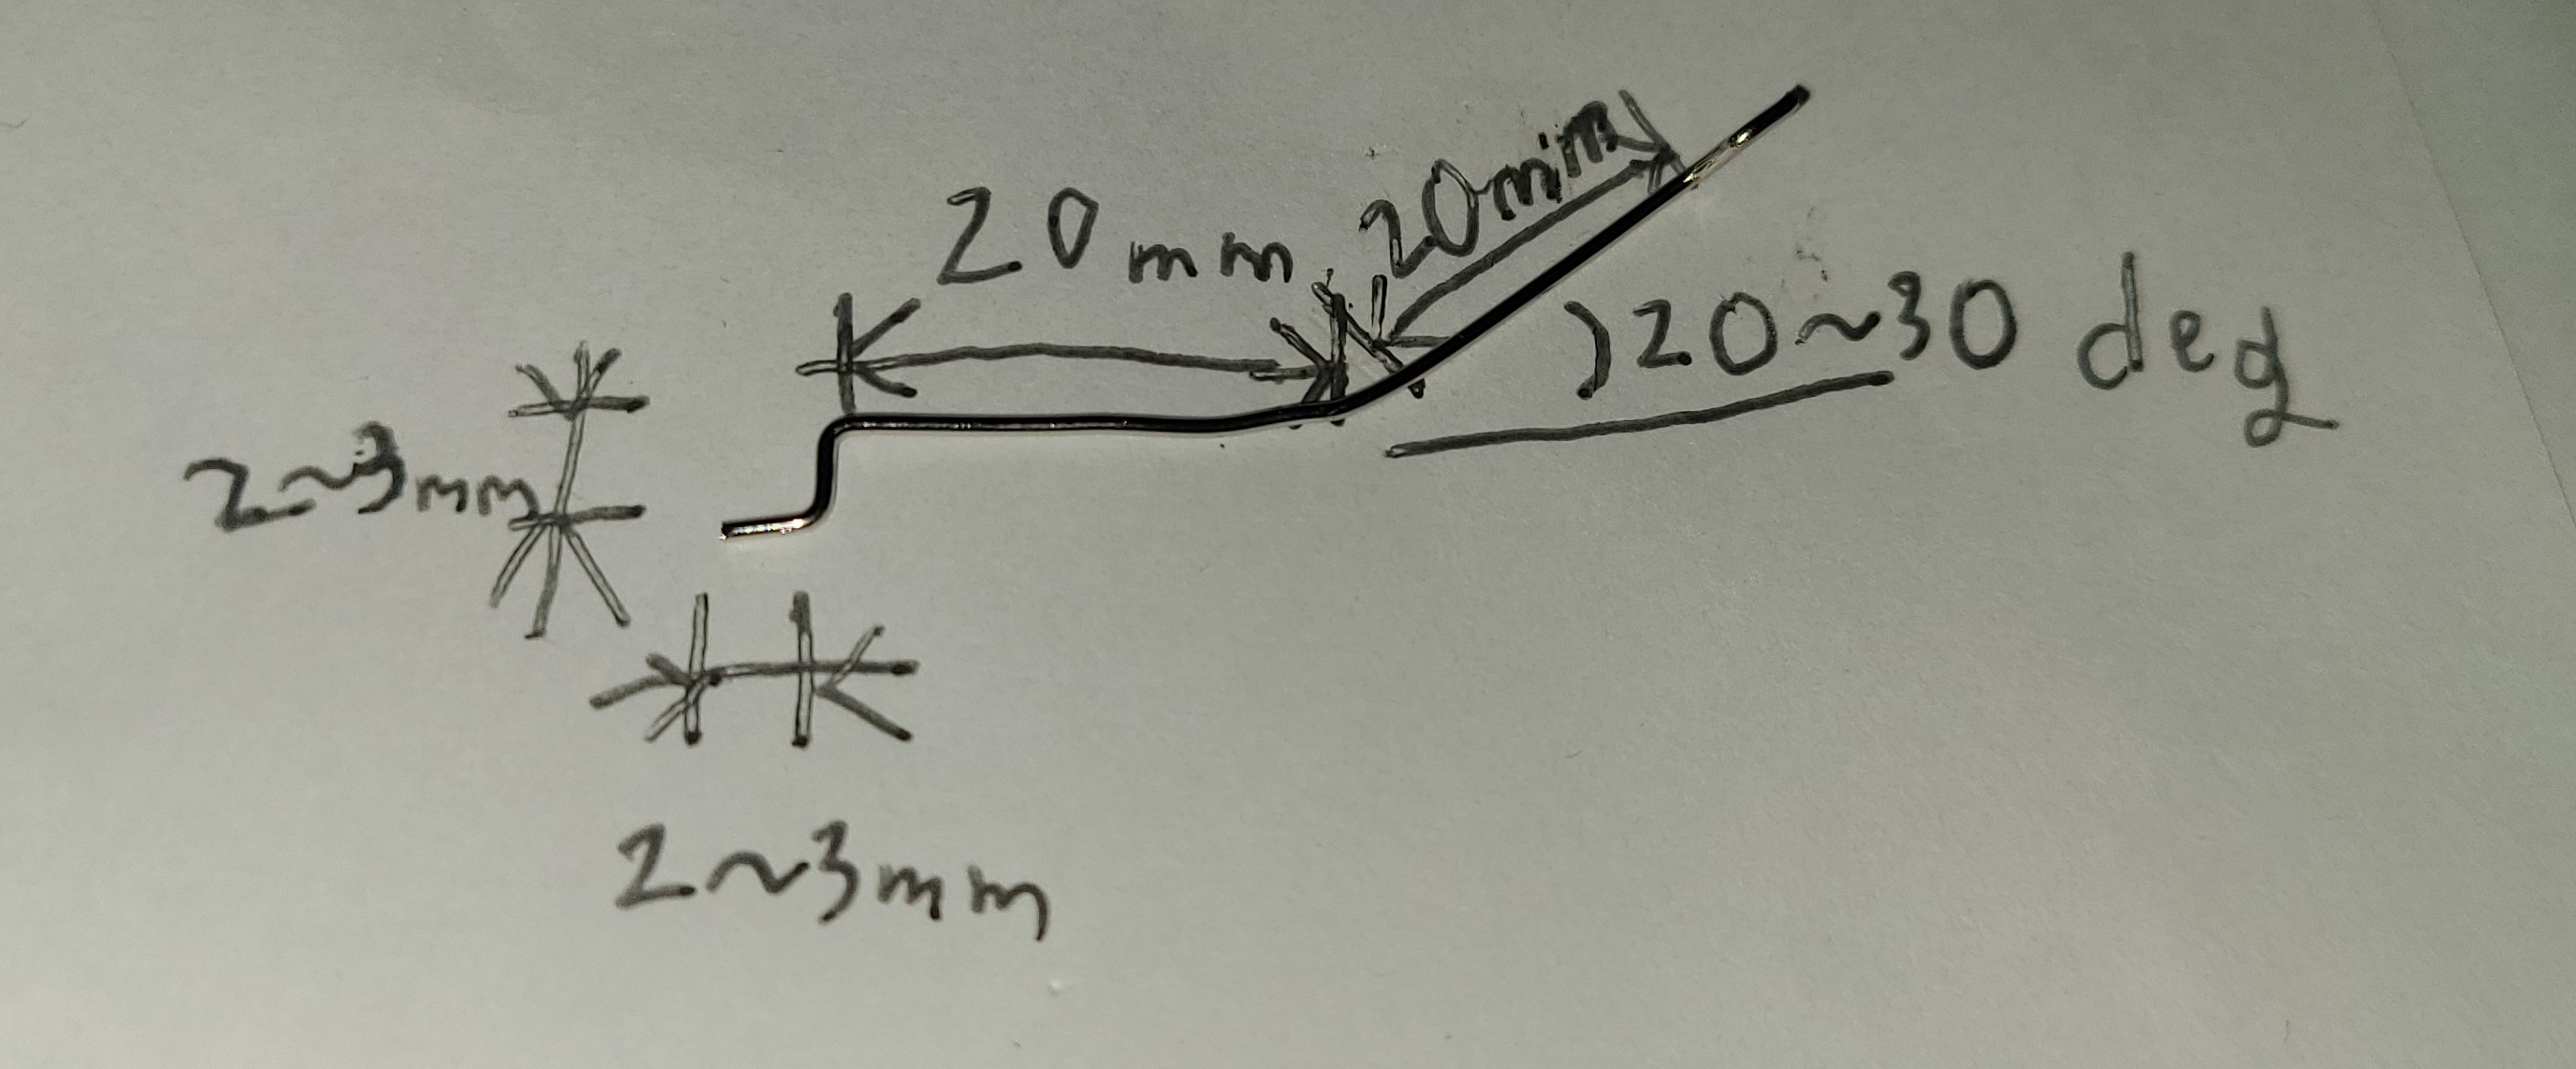 20mm
20mm
)20~30 deg
2~3mm
2~3mm